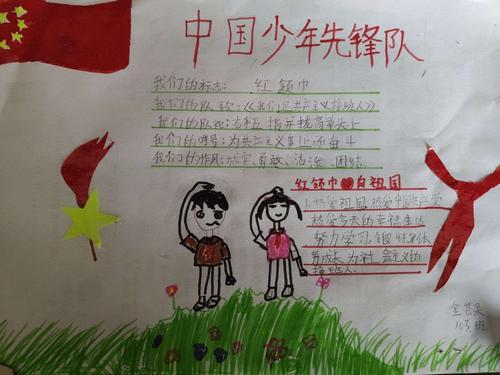 中国少年先锋队
我们的标志: 红领巾
我们的队歌:《我们是共产主义接班人》
我们的队礼:右手五指并拢高举头上
我们的呼号:为共产主义事业而奋斗
我们的作风:诚实、勇敢、活泼、团结
红领巾 自祖国
1. 热爱祖国,热爱中国共产党
热爱今天的幸福生活
努力学习 锻炼身体
为 社会主义的
接班人.
103班